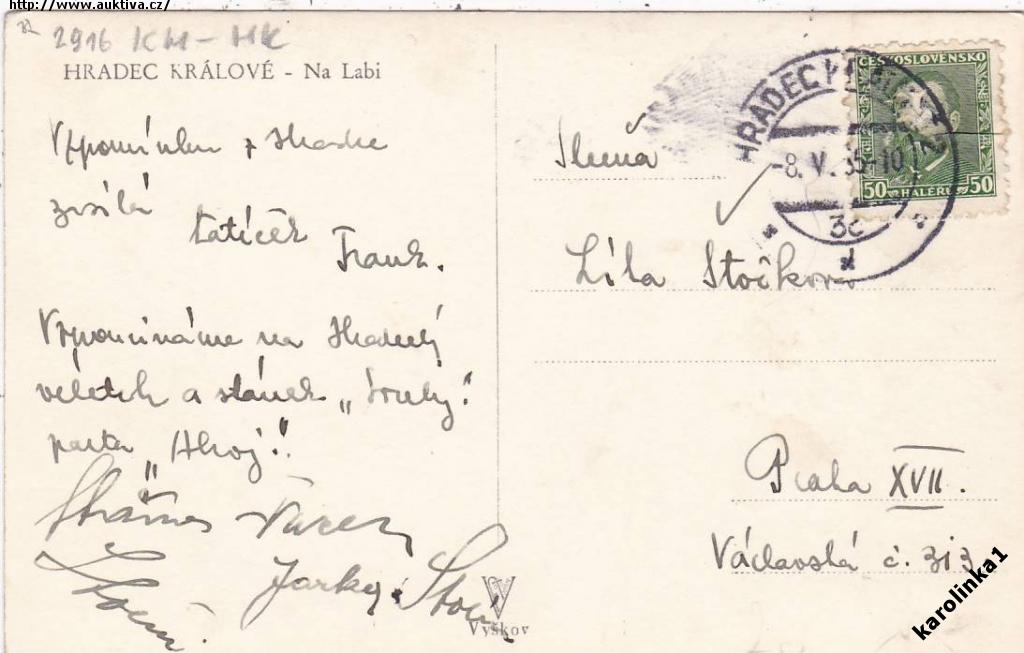 http://www.auktiva.cz/
2916 KM-HK
HRADEC KRÁLOVÉ - Na Labi
Vzpomínku z Hradce
zasílá
tatíček
Frank.
Vzpomínáme na Hradecký
veletrh a stánek „
parta „Ahoj".
Jarka
Vyškov
Slečna
Líla Stočkova
Praha XVII.
Václavská č. 313
HRADEC KRÁLOVÉ 2
-8. V. 35-10
3c
ČESKOSLOVENSKO
50 HALÉŘŮ 50
karolinka1